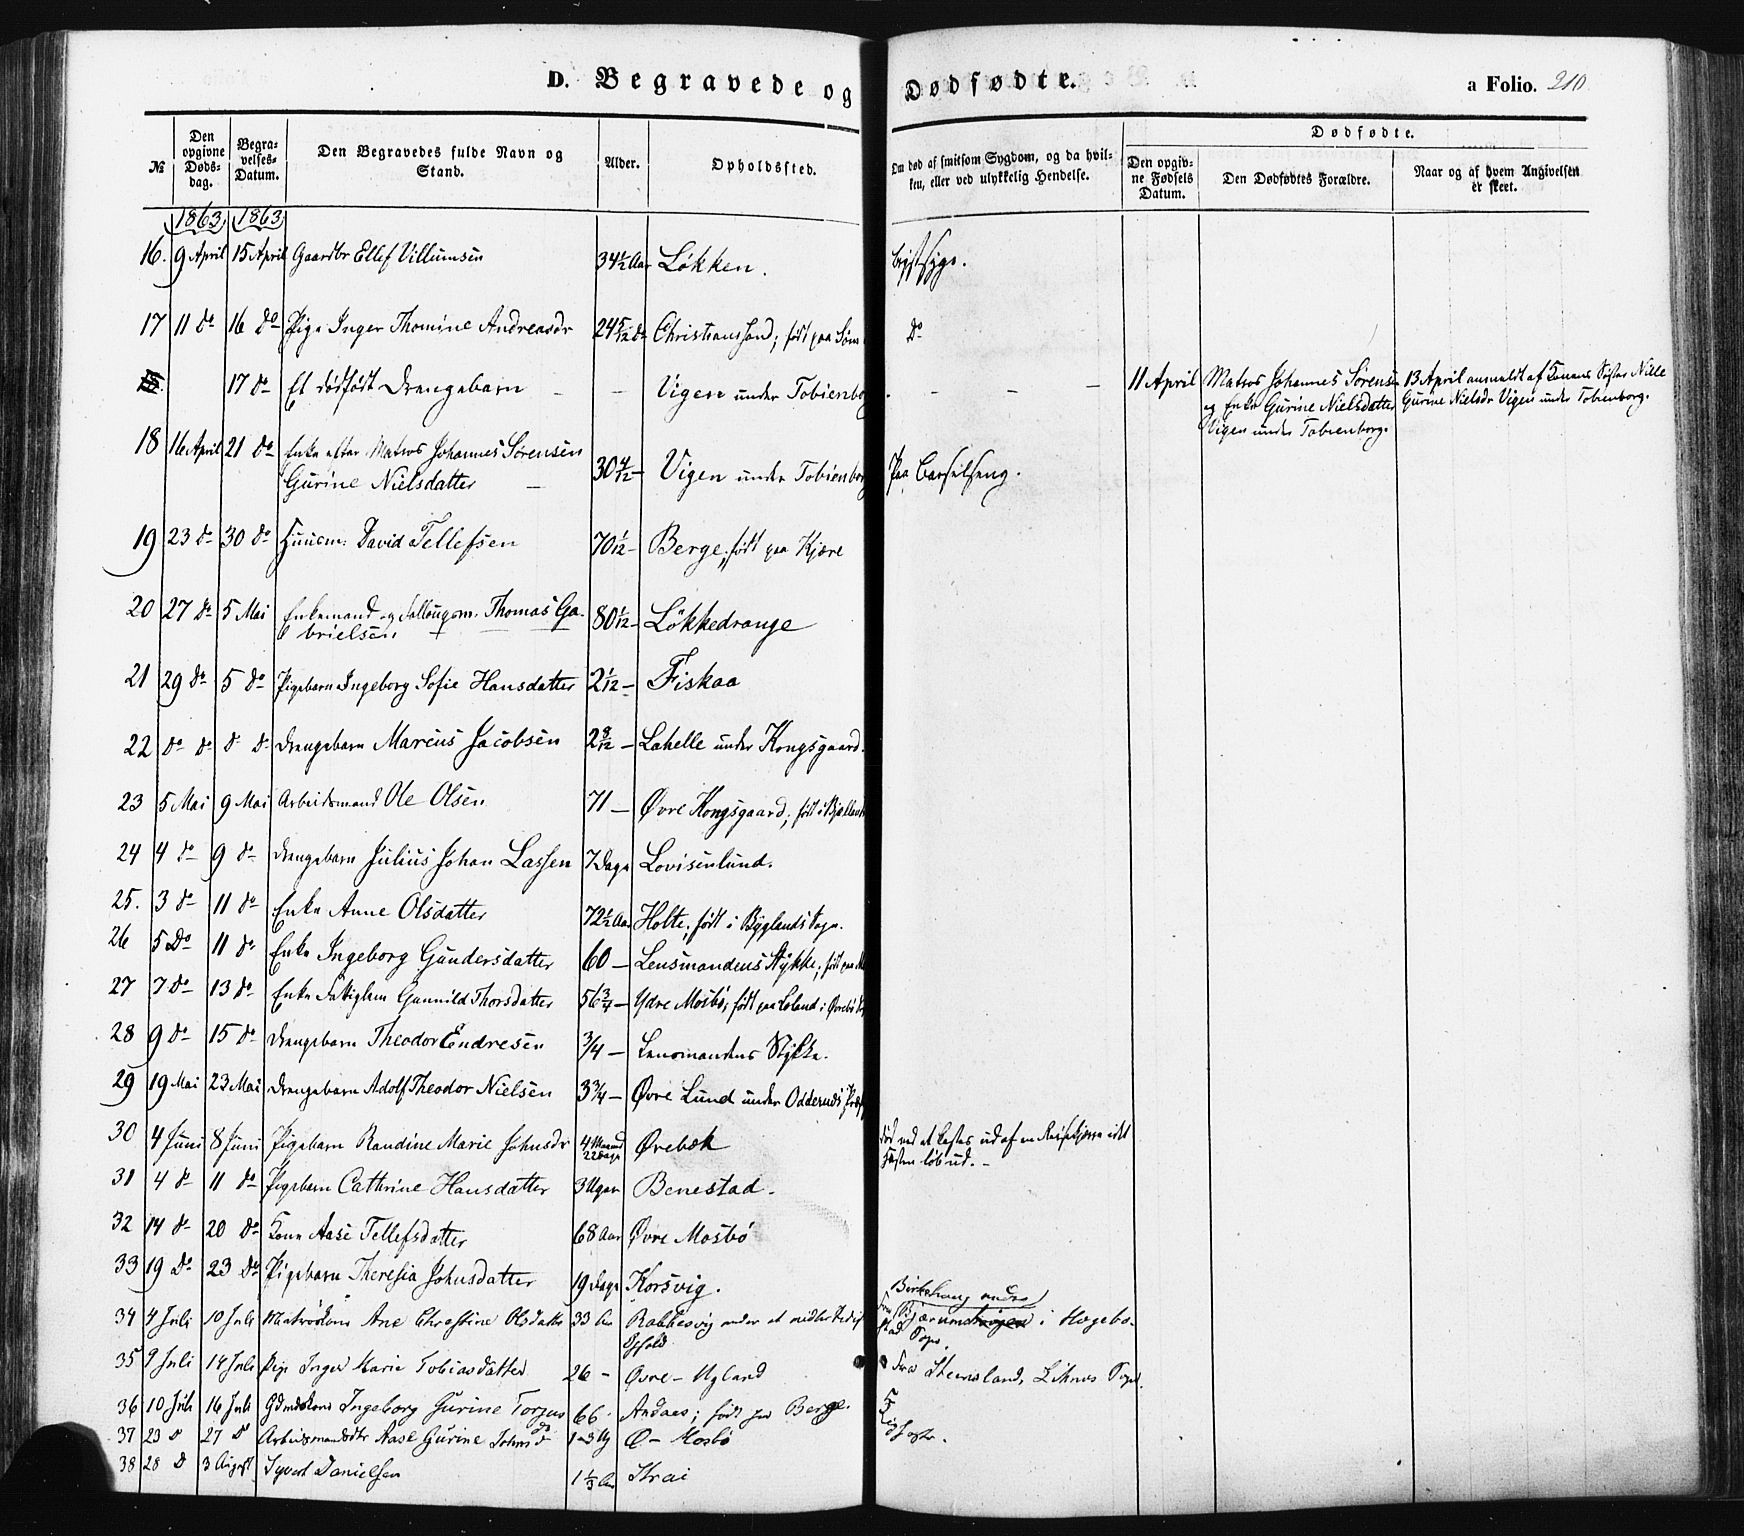 D. Begravede og Dødfødte.
a Folio. 210
№
Den opgivne Døds-dag.
Begra-velses-Datum.
Den Begravedes fulde Navn og Stand.
Alder.
Opholdssted.
Om død af smitsom Sygdom, og da hvil-ken, eller ved ulykkelig Hendelse.
Dødfødte.
Den opgiv-ne Fødsels Datum.
Den Dødfødtes Forældre.
Naar og af hvem Angivelsen er skeet.
1863 1863
16. 9 April 15 April Gaardbr Ellef Villumsen 34½ Aar Løkken. Brystsyge.
17 11 do 16 Do Pige Inger Thomine Andreasdr 24 5/12 do Christianssand; født paa Søm Do
17 do Et dødfødt Drengebarn – – Vigen under Tobienborg – – – 11 April Matros Johannes Sørensen 13 April anmeldt af Konens Søster Nille
og Enke Gurine Nielsdatter Gurine Nielsdr Vigen under Tobienborg.
Vigen under Tobienborg.
18 16 April 21 Do Enke efter Matros Johannes Sørensen
Gurine Nielsdatter – 30 4/12 – Vigen under Tobienborg Paa Barselseng.
19 23 do 30 do Huusm: David Tellefsen 70 1/12 – Berge, født paa Kjære
20 27 do 5 Mai Enkemand og Fattiglem. Thomas Ga-
brielsen 80 1/12 – Løkkedrange
21 29 do 5 do Pigebarn Ingeborg Sofie Hansdatter 2 1/12 – Fiskaa
22 do do d do Drengebarn Marcus Jacobsen 2 8/12 – Lahelle under Kongsgaard.
23 5 Mai 9 Mai Arbeidsmand Ole Olsen 71 – Øvre Kongsgaard; født i
24 4 do 9 do Drengebarn Julius Johan Lassen 7 Dage Lovisenlund.
25. 3 do 11 do Enke Anne Olsdatter 72½ Aar Holte, født i Byglands Sogn.
26 5 Do 11 do Enke Ingeborg Gundersdatter 60 – Lensmandens Stykke; født paa
27 7 do 13 do Enke Fattiglem Gunnild Thorsdatter 56¾ – Ydre Mosbø; født paa Loland i Øvrebø
28 9 do 15 do Drengebarn Theodor Endresen 3/4 – Lensmandens Stykke.
29 19 Mai 23 Mai Drengebarn Adolf Theodor Nielsen 3¾ – Øvre Lund under Oddernes
30 4 Juni 8 Juni Pigebarn Randine Marie Johnsdr 4 Maaned 22 Dage Ørebæk død ved at kastes ud af en Reisekjærre idet
Hesten løb ud. –
31 4 do 11 do Pigebarn Cathrine Hansdatter 3 Uger Benestad.
32 14 do 20 do Kone Aase Tellefsdatter 68 Aar Øvre Mosbø
33 19 Do 23 Do Pigebarn Theresia Johnsdatter 19 Dage Korsvig.
Birkehaug under
34 4 Juli 10 Juli Matroskone Ane Christine Olsdatter 33 Aar Rabbesvig under et midlertidigt
Ophold Fra Bjærum i Hægebo-
stad Sogn.
35 9 Juli 14 Juli Pige Inger Marie Tobiasdatter 26 – Øvre – Ugland Fra Steensland, Liknes Sogn.
36 10 Juli 16 Juli Gdmdskone Ingeborg Gurine Torgus 66 Andaas; født paa Berge.
37 23 D 27 D Arbeidsmandsdtr Aase Gurine Johnsd Ø – Mosbø
38 28 D 3 August Syvert Danielsen 1⅓ Aar Strai